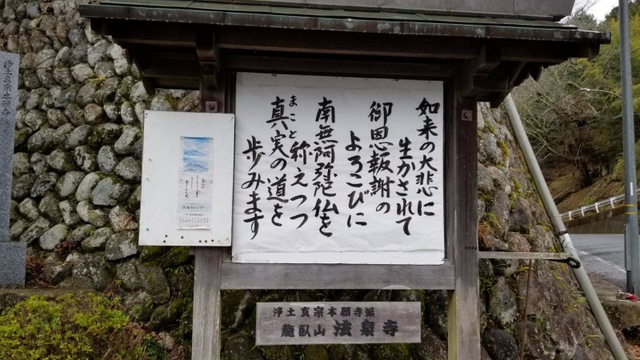 如来の大悲に
生かされて
御恩報謝の
よろこびに
南無阿弥陀仏を
称えつつ
真実の道を
まこと
歩みます
浄土真宗本願寺派
龍臥山 法泉寺
浄土真宗本願寺